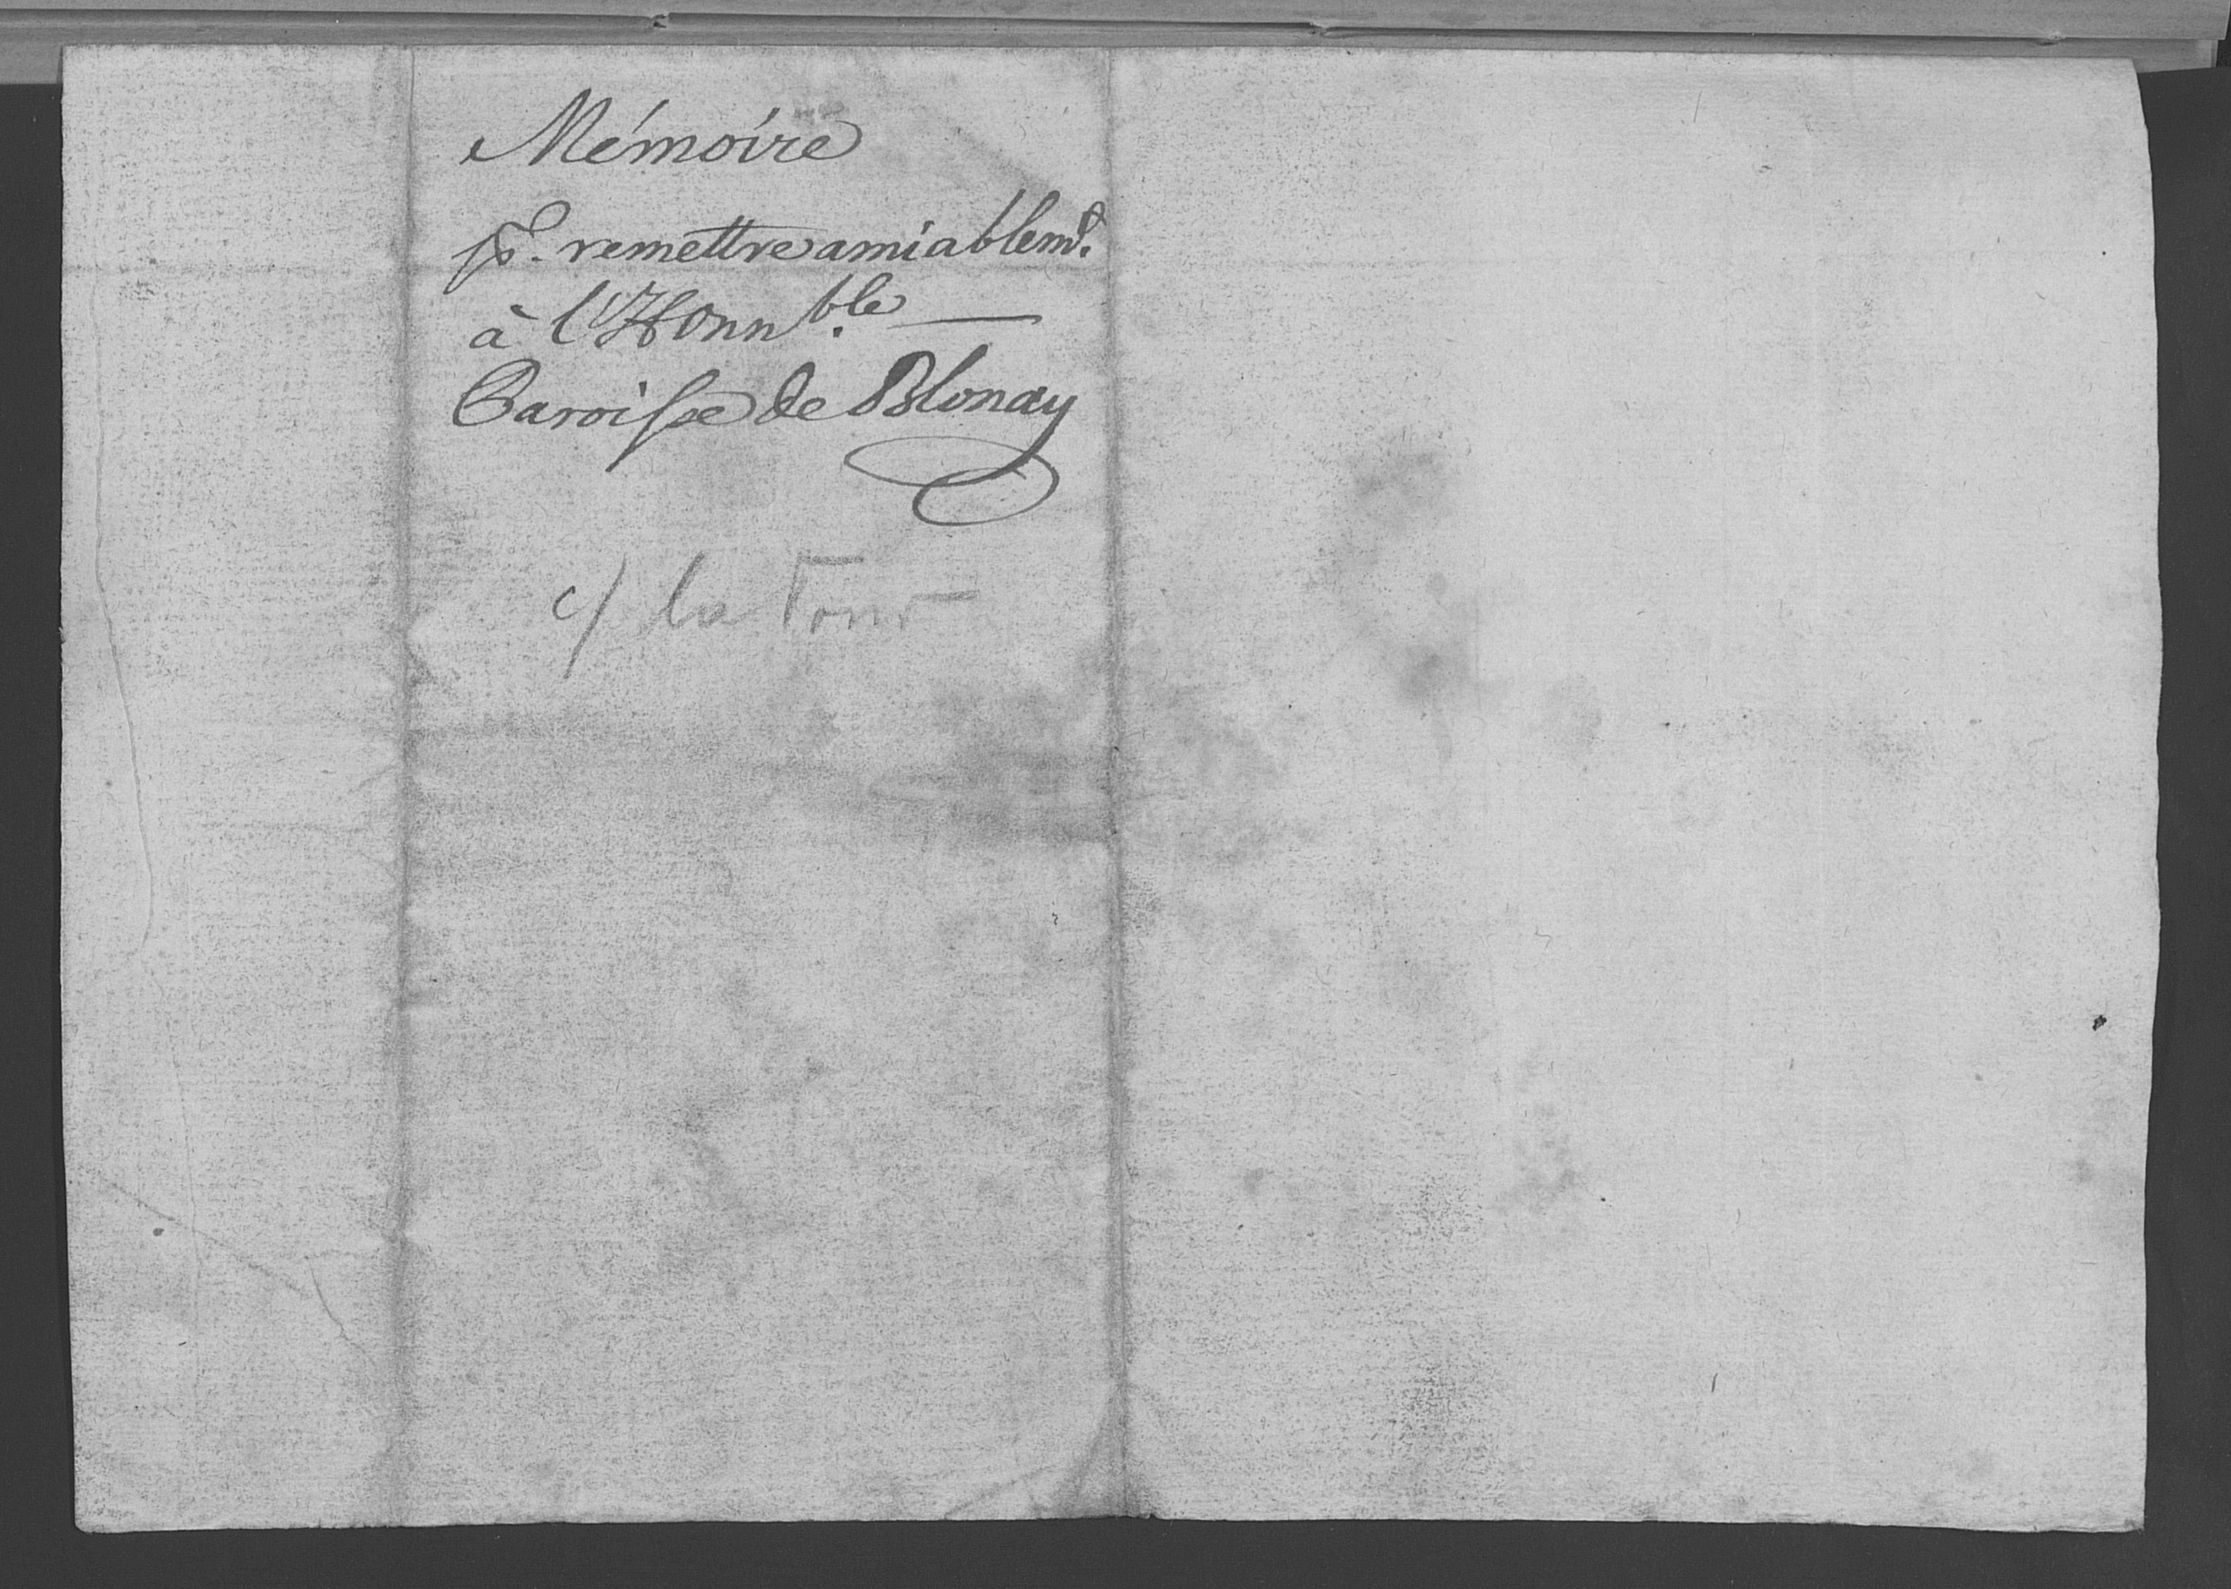 Mémoire
pr. remettre amiablemt.
à l'Honnble.
Paroisse de Blonay
c/ la Tour